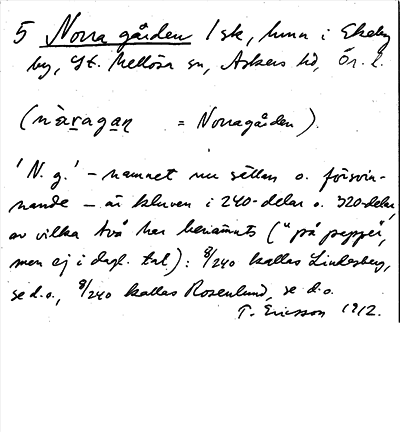 5 Norra gården 1 sk, hmn i Ekeby
by, St. Mellösa sn, Askers hd, Ör. l.
(nàragan = Norragården).
'N. g.' – namnet nu sällan o. försvin-
nande – är kluven i 240-delar o. 320-delar,
av vilka två har benämnts ("på papper",
men ej i dagl. tal.): 8/240 kallas Lindesberg,
se d.o., 8/240 kallas Rosenlund, se d.o.
T. Ericsson 1912.